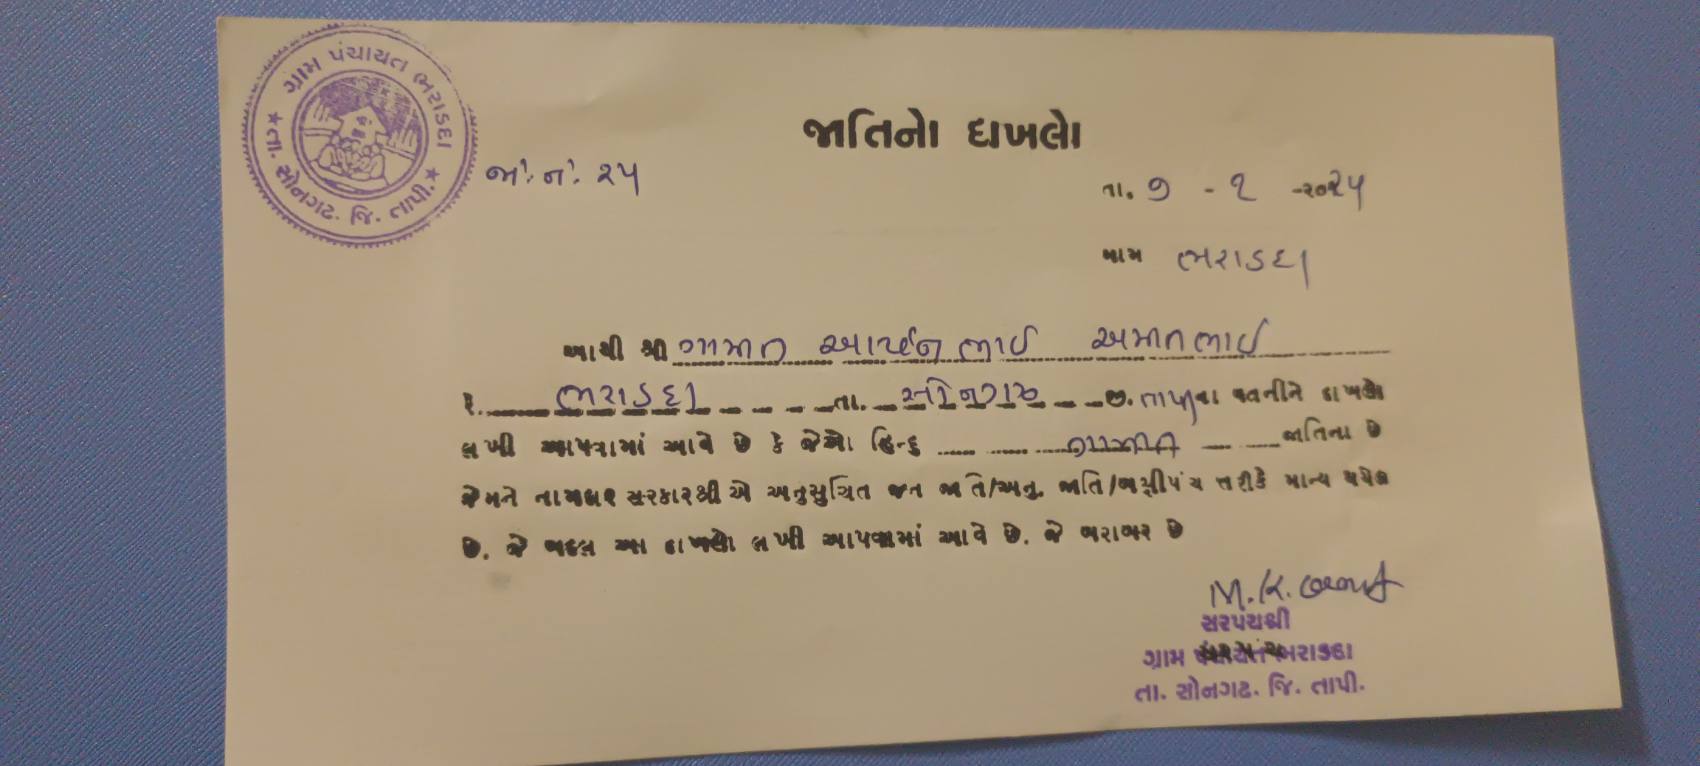 ગ્રામ પંચાયત ભરાડદા
★ તા. સોનગઢ. જિ. તાપી. ★
જાતિનો દાખલો
જા. નં. ૨૫
તા. ૭ - ૨ -૨૦૨૫
ગામ ભરાડદા
આથી શ્રી ગામીત આર્યનભાઈ અમીતભાઈ
રે. ભરાડદા તા. સોનગઢ જી. તાપીના વતનીને દાખલો
લખી આપવામાં આવે છે કે જેઓ હિન્દુ ગામીત જાતિના છે
જેમને નામદાર સરકારશ્રી એ અનુસુચિત જન જાતિ/અનુ. જાતિ/બક્ષીપંચ તરીકે માન્ય થયેલ
છે. જે બદલ આ દાખલો લખી આપવામાં આવે છે. જે બરાબર છે
M.K.
સરપંચશ્રી
ગ્રામ પંચાયત ભરાડદા
તા. સોનગઢ. જિ. તાપી.